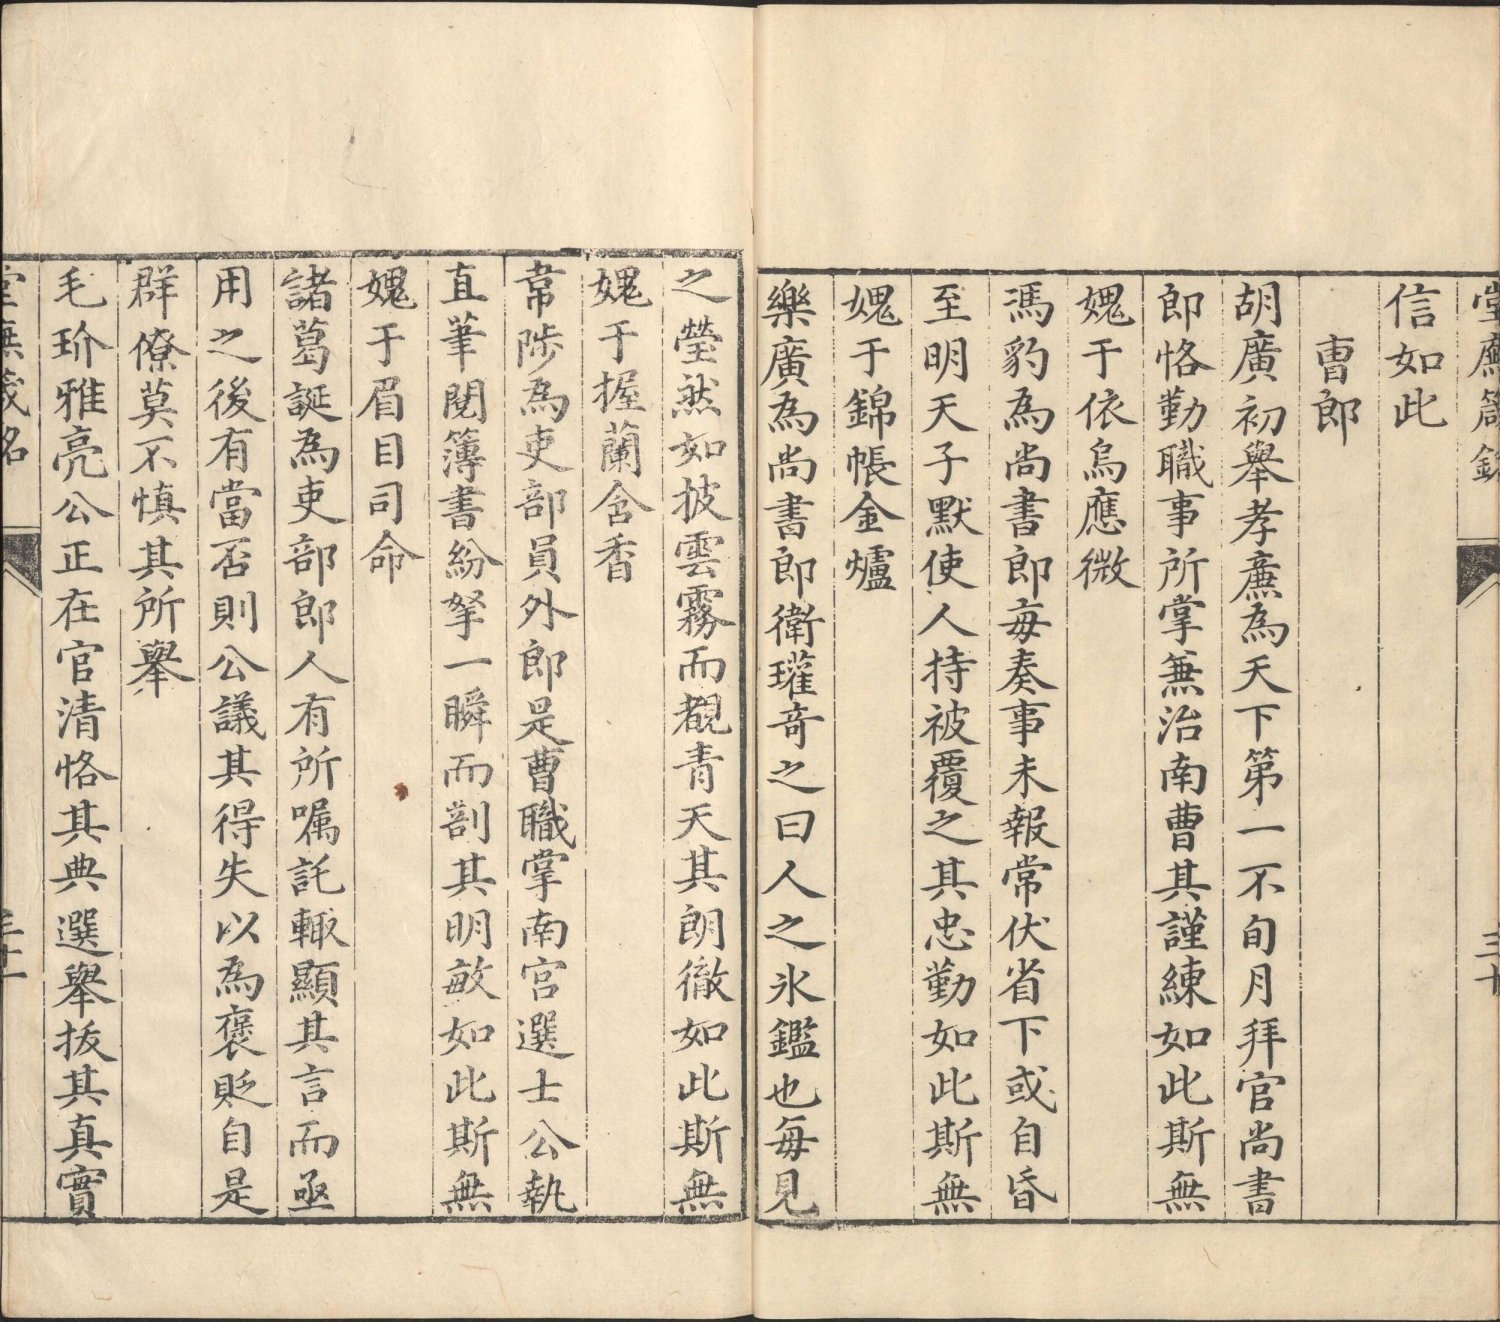 信如此
曹郎
胡廣初舉孝㢘為天下第一不旬月拜官尚書
郎恪勤職事所掌兼治南曹其謹練如此斯無
媿于依烏應微
馮豹為尚書郎每奏事未報常伏省下或自昏
至明天子默使人持被覆之其忠勤如此斯無
媿于錦帳金爐
樂廣為尚書郎衛瓘奇之曰人之氷鑑也每見
之瑩然如披雲霧而覩青天其朗徹如此斯無
媿于握蘭含香
韋陟為吏部員外郎是曹職掌南宮選士公執
直筆閱簿書紛拏一瞬而剖其明敏如此斯無
媿于眉目司命
諸葛誕為吏部郎人有所囑託輙顯其言而亟
用之後有當否則公議其得失以為褒貶自是
群僚莫不慎其所舉
毛玠雅亮公正在官清恪其典選舉拔其真實